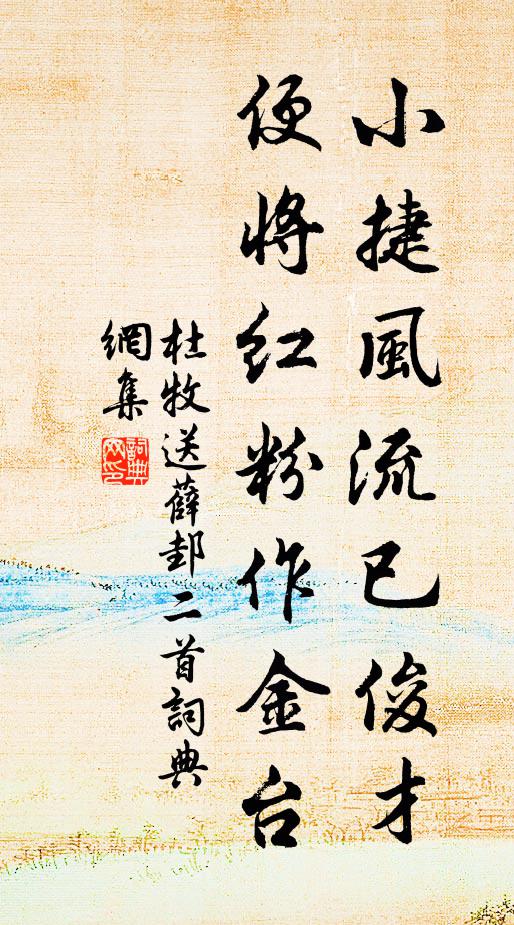 小捷風流已俊才
便將紅粉作金台
杜牧送薛邽二首詞典
網集
詞典
网印